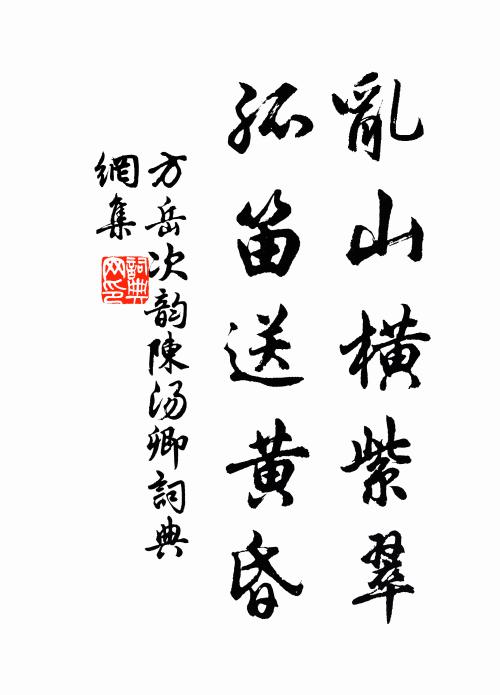 亂山橫紫翠
孤笛送黃昏
方岳次韵陳湯卿詞典
網集
詞典
网印